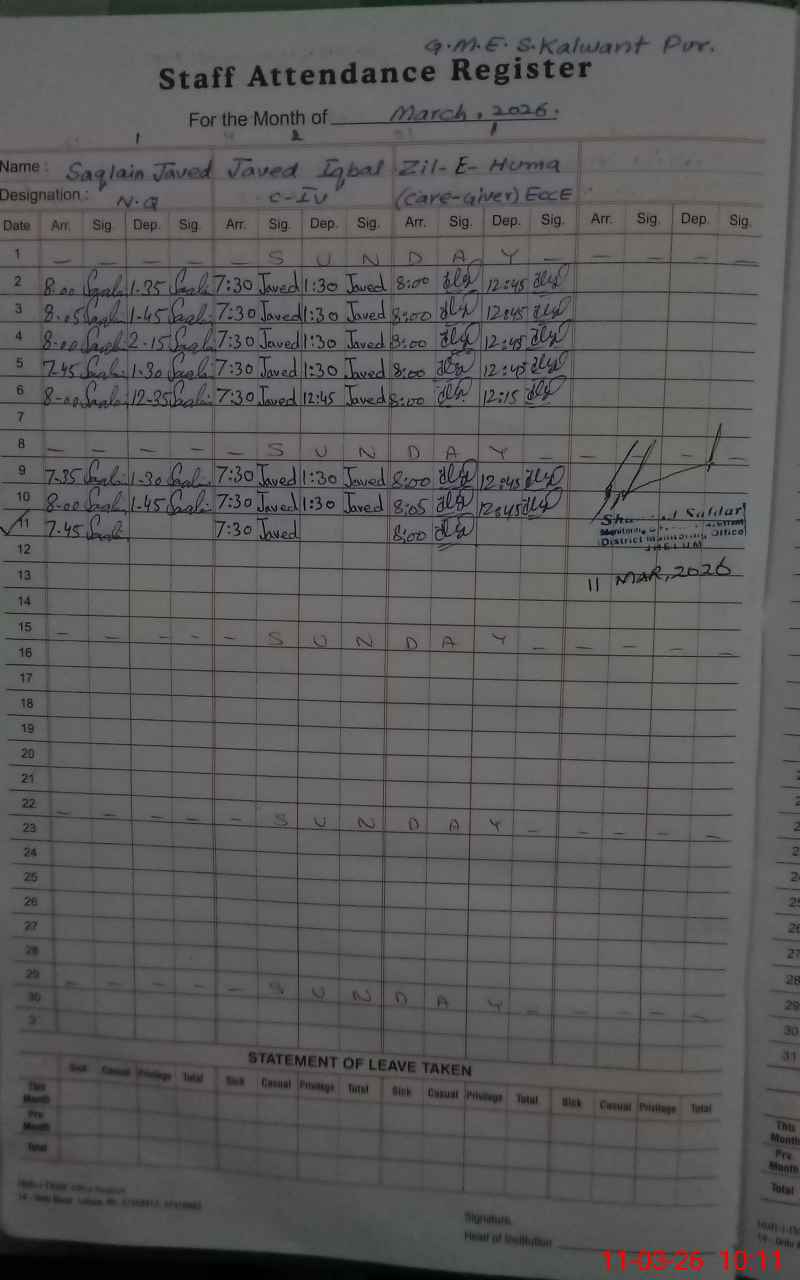 G.M.E.S. Kalwant Pur.
Staff Attendance Register
For the Month of March, 2026.
1 2
Name : Saqlain Javed Javed Iqbal Zil-E-Huma
Designation : N.Q C-IV (Care-Giver) ECCE
Date Arr. Sig. Dep. Sig. Arr. Sig. Dep. Sig. Arr. Sig. Dep. Sig. Arr. Sig. Dep. Sig.
1 – – – – – S U N D A Y –
2 8:00 Saqli 1-35 Saqli 7:30 Javed 1:30 Javed 8:00 12:45
3 8.05 Saqli 1-45 Saqli 7:30 Javed 1:30 Javed 8:00 12:45
4 8:00 Saqli 2-15 Saqli 7:30 Javed 1:30 Javed 8:00 12:45
5 7.45 Saqli 1.30 Saqli 7:30 Javed 1:30 Javed 8:00 12:45
6 8-00 Saqli 12-35 Saqli 7:30 Javed 12:45 Javed 8:00 12:15
7
8 – – – – – S U N D A Y – – – – –
9 7.35 Saqli 1-30 Saqli 7:30 Javed 1:30 Javed 8:00 12:45
10 8-00 Saqli 1-45 Saqli 7:30 Javed 1:30 Javed 8:05 12:45
11 7.45 Saqli 7:30 Javed 8:00
Safdar
District Monitoring Office
JHELUM
12
11 MAR, 2026
13
14
15 – – – – – S U N D A Y – – – – –
16
17
18
19
20
21
22 – – – – – S U N D A Y – – – – –
23
24
25
26
27
28
29 – – – – – S U N D A Y – – – – –
30
3
STATEMENT OF LEAVE TAKEN
Sick Casual Privilege Total Sick Casual Privilege Total Sick Casual Privilege Total Sick Casual Privilege Total
This Month
Prv. Month
Total
Signature.
Head of Institution
24
25
26
27
28
29
30
31
This Month
Prv. Month
Total
11-03-26 10:11